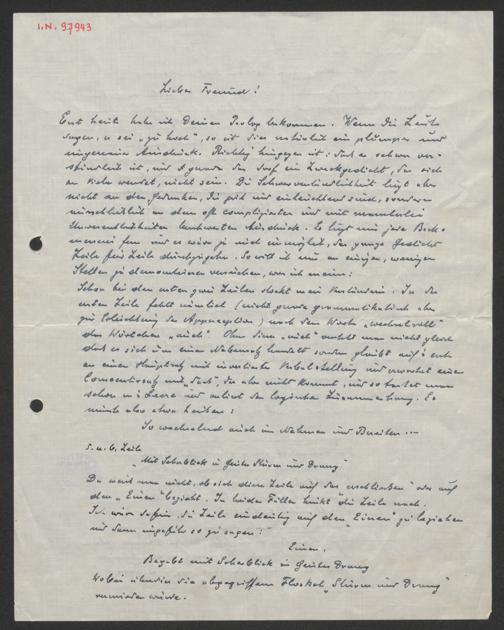 I.N. 97943
Lieber Freund!
Erst heute habe ich Deinen Prolog bekommen. Wenn die Leute
sagen, er sei "zu hoch", so ist dies natürlich ein plumper und
ungenauer Ausdruck. Richtig hingegen ist: daß er schwer ver-
ständlich ist, und gerade das darf ein Zweckgedicht, das sich
an viele wendet, nicht sein. Die Schwerverständlichkeit liegt aber
nicht an den Gedanken, die ja einleuchtend sind, sondern
an dem oft komplizierten und mit
Ausdruck. Es liegt mir jede
fern und es wäre ja auch unmöglich, das ganze Gedicht
Zeile für Zeile durchzugehen. So will ich nur an einigen, wenigen
Stellen zu demonstrieren versuchen, was ich meine:
Schon bei den ersten zwei Zeilen stockt mein Verständnis. In der
ersten Zeile fehlt nämlich (nicht gerade grammatikalisch aber
zur Erleichterung der Apperzeption) nach dem Worte "wechselnd"
das Wörtchen "auch". Ohne dieses "auch" merkt man nicht gleich
daß es sich um einen Nebensatz handelt sondern glaubt
an einen Hauptsatz mit invertierter Verbalstellung und erwartet einen
Consecutivsatz mit "daß", der aber nicht kommt, und so tastet man
schon ins Leere und verliert den logischen Zusammenhang. Es
müßte also etwa heißen:
So wechselnd auch im Nahmen und Breiten ...
5. u. 6. Zeile
"Mit Seherblick in Geistes Sturm und Drang"
Da weiß man nicht, ob sich diese Zeile auf das "erschlossen" oder auf
den "Einen" bezieht. In beiden Fällen hinkt die Zeile nach.
Ich wäre dafür, die Zeile eindeutig auf den "Einen" zu beziehen
und dann ungefähr so zu sagen:
Einer,
Begabt mit Seherblick in Geistes Drang
Wobei überdies die abgegriffene Floskel "Sturm und Drang"
vermieden würde.